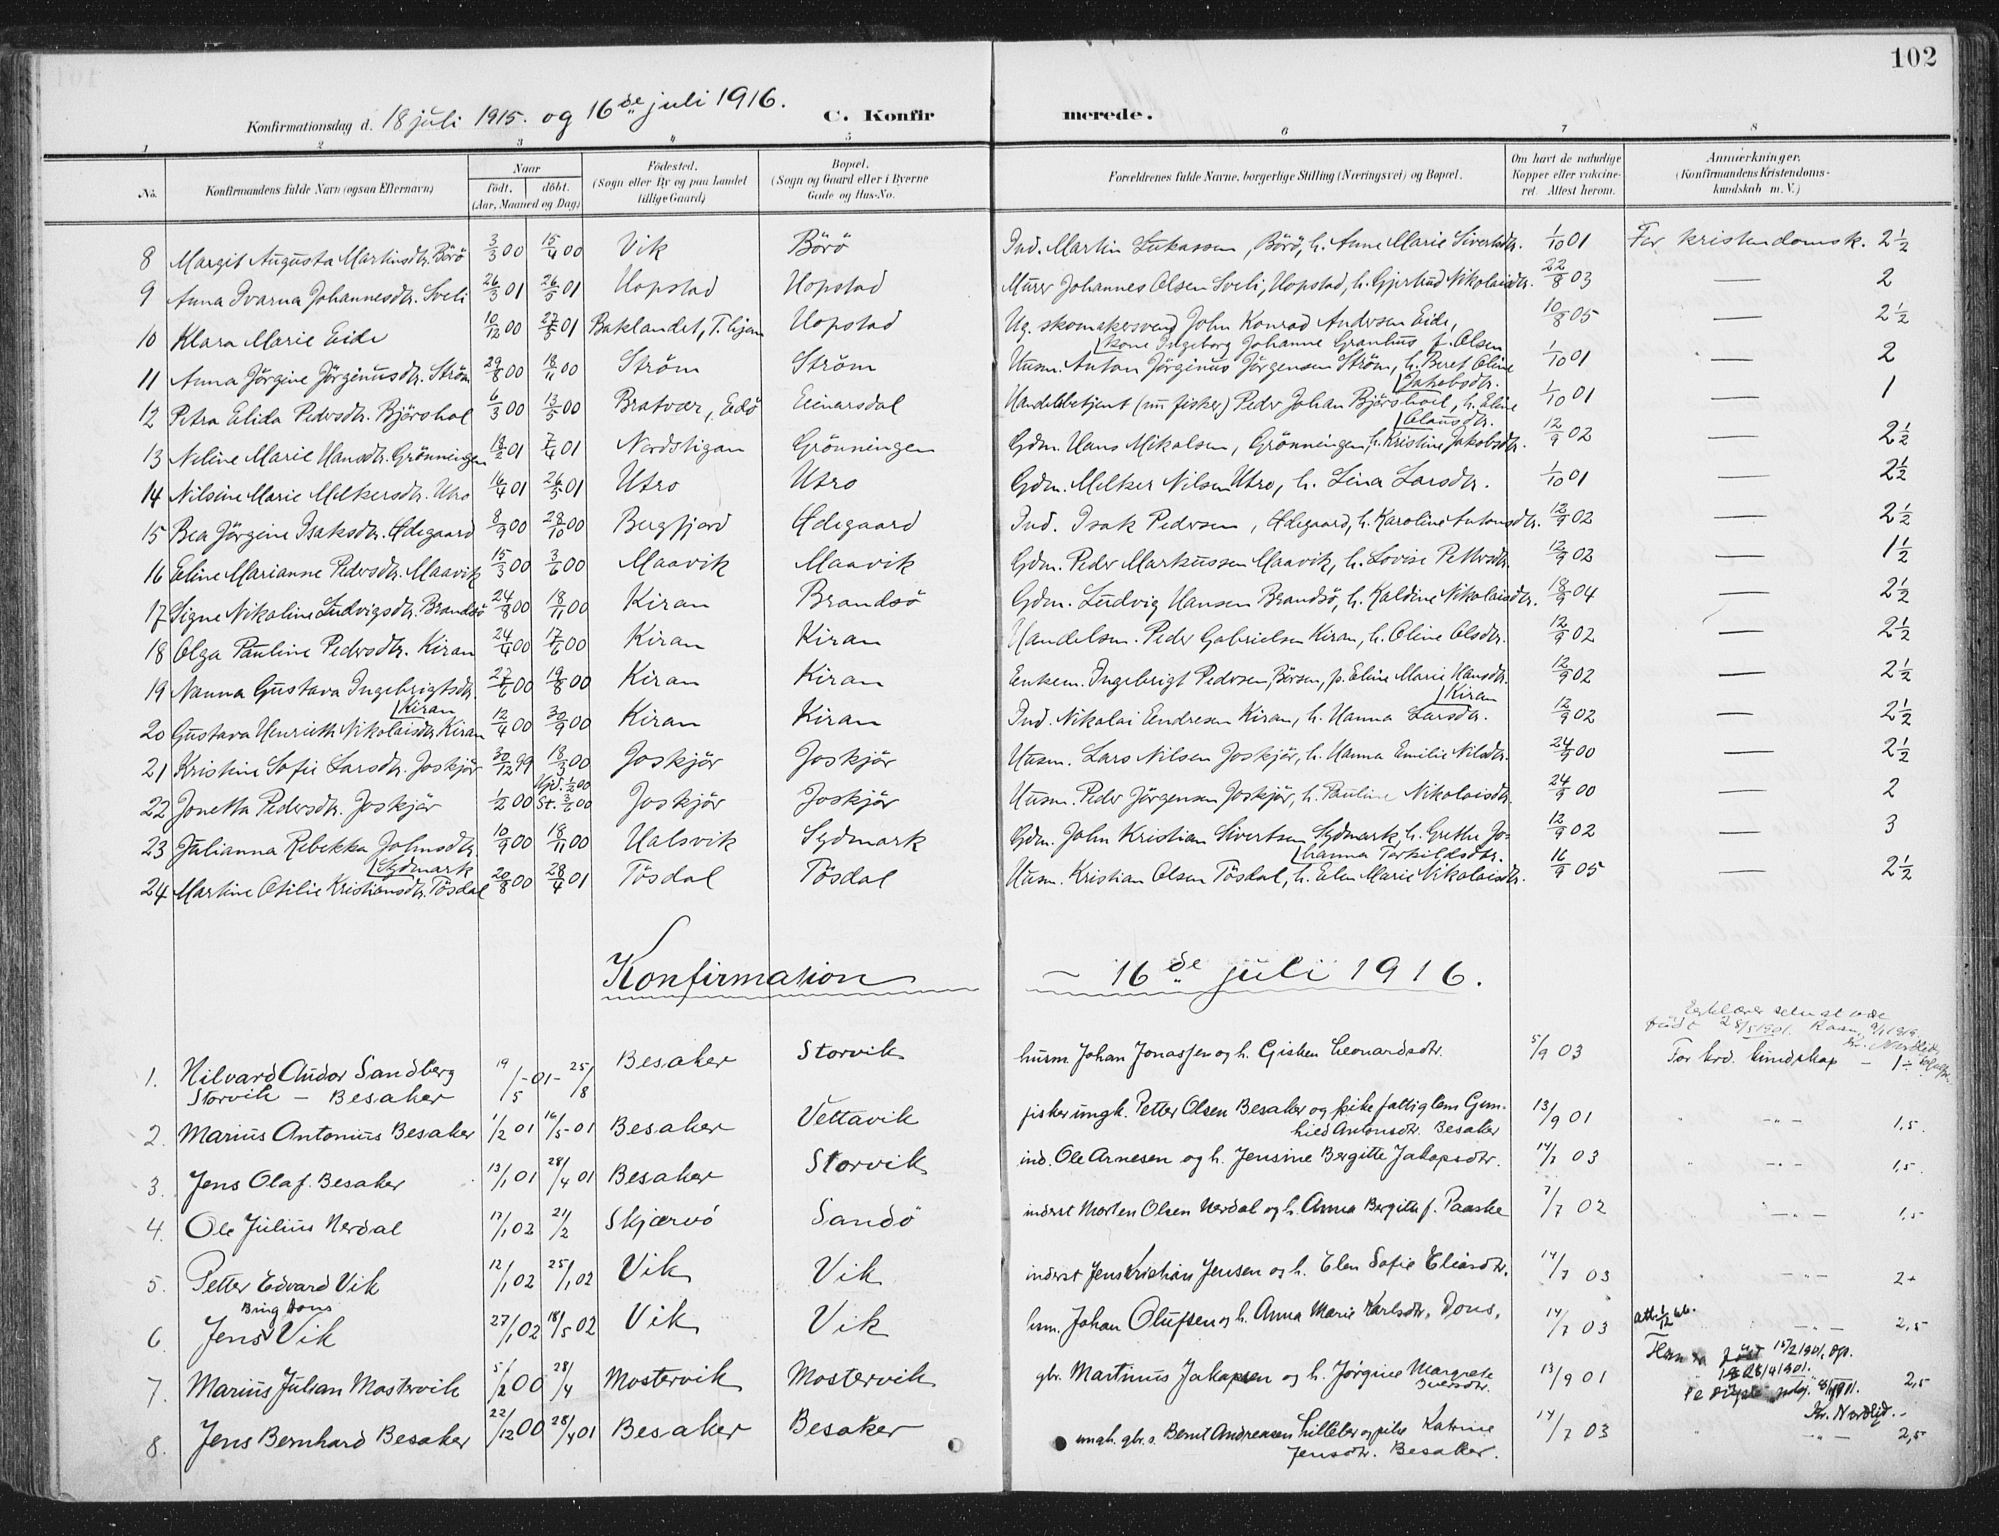 102
Konfirmationsdag d. 18 juli 1915. og 16de juli 1916. C. Konfirmerede.
1 2 3 4 5 6 7 8
No. Konfirmandens fulde Navn (ogsaa Efternavn) Naar født. døbt. (Aar, Maaned og Dag) Fødested. (Sogn eller By og paa Landet tillige Gaard) Bopæl. (Sogn og Gaard eller i Byerne Gade og Hus-No. Forældrenes fulde Navne, borgerlige Stilling (Næringsvei) og Bopæl. Om havt de naturlige Kopper eller vakcineret. Attest herom. Anmærkninger. (Konfirmandens Kristendomskundskab m. V.)
8 Margit Augusta Martinsdtr. Börö 3/3 00 15/4 00 Vik Börö Ind. Martin Lukassen, Börö, h. Anne Marie Sivertsdtr. 1/10 01 For kristendomsk. 2 1/2
9 Anna Ivarna Johannesdtr. Sveli 26/3 01 26/5 01 Hopstad Hopstad Murer Johannes Olsen Sveli, Hopstad, h. Gjertrud Nikolaisdtr. 22/8 03 — 2
10 Klara Marie Eide 10/12 00 27/5 01 Baklandet, T.hjem Hopstad Ug. skomakersvend John Konrad Andersen Eide, 10/8 05 — 2 1/2
kone Ingeborg Johanne Granhus f. Olsen
11 Anna Jörgine Jörginusdtr. Ström 29/8 00 18/11 00 Ström Ström Husm. Anton Jörginus Jörgensen Ström, h. Beret Oline 1/10 01 — 2
Jakobsdtr.
12 Petra Elida Pedersdtr. Björshol 6/3 00 13/5 00 Bratvær, Edö Einarsdal Handelsbetjent (nu fisker) Peder Johan Björshol, h. Eline 1/10 01 — 1
Clausdtr.
13 Neline Marie Hansdtr. Grönningen 18/2 01 7/4 01 Nordstigan Grönningen Gdm. Hans Mikalsen, Grönningen, h. Kristine Jakobsdtr. 12/9 02 — 2 1/2
14 Nilsine Marie Melkersdtr. Utro 16/4 01 26/5 01 Utro Utro Gdm. Melker Nilsen Utro, h. Lina Larsdtr. 1/10 01 — 2 1/2
15 Bea Jörgine Isaksdtr. Ødegaard 8/9 00 28/10 00 Bergfjord Ødegaard Ind. Isak Pedersen, Ødegaard, h. Karoline Antonsdtr. 12/9 02 — 2 1/2
16 Eline Marianne Pedersdtr. Maavik 15/3 00 3/6 00 Maavik Maavik Gdm. Peder Markussen Maavik, h. Lovise Pettersdtr. 12/9 02 — 1 1/2
17 Signe Nikoline Ludvigsdtr. Brandsö 24/8 00 18/11 00 Kiran Brandsö Gdm. Ludvig Hansen Brandsö, h. Kaldine Nikolaisdtr. 18/9 04 — 2 1/2
18 Olga Pauline Pedersdtr. Kiran 24/4 00 17/6 00 Kiran Kiran Handelsm. Peder Gabrielsen Kiran, h. Oline Olsdtr. 12/9 02 — 2 1/2
19 Nanna Gustava Ingebrigtsdtr. 27/6 00 19/8 00 Kiran Kiran Enkem. Ingebrigt Pedersen, Börsen, p. Eline Marie Hansdtr. 12/9 02 — 2 1/2
Kiran Kiran
20 Gustava Henriette Nikolaisdtr. Kiran 12/4 00 30/9 00 Kiran Kiran Ind. Nikolai Endresen Kiran, h. Hanna Larsdtr. 12/9 02 — 2 1/2
21 Kristine Sofie Larsdtr. Joskjör 30/12 99 18/3 00 Joskjör Joskjör Husm. Lars Nilsen Joskjör, h. Hanna Emilie Nilsdtr. 24/9 00 — 2 1/2
22 Jonetta Pedersdtr. Joskjör 1/2 00 Hjd. 1/2 00 St. 3/6 00 Joskjör Joskjör Husm. Peder Jörgensen Joskjör, h. Pauline Nikolaisdtr. 24/9 00 — 2
23 Julianna Rebekka Johnsdtr. 10/9 00 18/11 00 Halsvik Sydmark Gdm. John Kristian Sivertsen Sydmark, h. Grethe Jo- 12/9 02 — 3
Sydmark hanna Torkildsdtr.
24 Martine Otilie Kristiansdtr. Tösdal 20/8 00 28/4 01 Tösdal Tösdal Husm. Kristian Olsen Tösdal, h. Elen Marie Nikolaisdtr. 16/9 05 — 2 1/2
Konfirmation — 16de juli 1916.
Erklærer selv at være
født 28/5 1901.
1. Hilvard Andor Sandberg 19/5 -01- 25/8 Besaker Storvik husm. Johan Jonassen og h. Gisken Leonardsdtr. 5/9 03 For krd. kundskap - 1
Storvik - Besaker
2. Marius Antonius Besaker 1/2 01 16/5 -01 Besaker Vettavik fisker ungk. Petter Olsen Besaker og pike fattiglem Gun- 13/9 01 " -"- 1,5.
hild Antonsdtr. Besaker
3. Jens Olaf Besaker 13/1 01 28/4 01 Besaker Storvik ind. Ole Arnesen og h. Jensine Bergitte Jakopsdtr. 14/7 03 " -"- 1,5.
4. Ole Julius Nerdal 17/1 02 21/2 Skjærvö Sandö inderst Morten Olsen Nerdal og h. Anna Bergitte f. Paaske 7/7 02 " -"- 1,5
5. Petter Edvard Vik 12/1 02 25/1 02 Vik Vik inderst Jens Kristian Jensen og h. Elen Sofie Eliasdtr. 14/7 03 " -"- 2+
Bring Dons
6. Jens Vik 27/1 02 18/5 02 Vik Vik hm. Johan Olufsen og h. Anna Marie Karlsdtr. Dons. 14/7 03 -"- 2,5
7. Marius Julian Mostervik 5/2 00 28/4 Mostervik Mostervik gbr. Martinus Jakopsen og h. Jörgine Margrete 13/9 01 Han er født 15/2 1901, 2,5
Iversdtr.
Kr. Nordlid.
8. Jens Bernhard Besaker 22/12 00 28/4 01 Besaker Besaker ungk. gbr.s. Bernt Andreasen Lillebø og pike Katrine 14/7 03 " -"- 2,5
Jensdtr. Besaker.